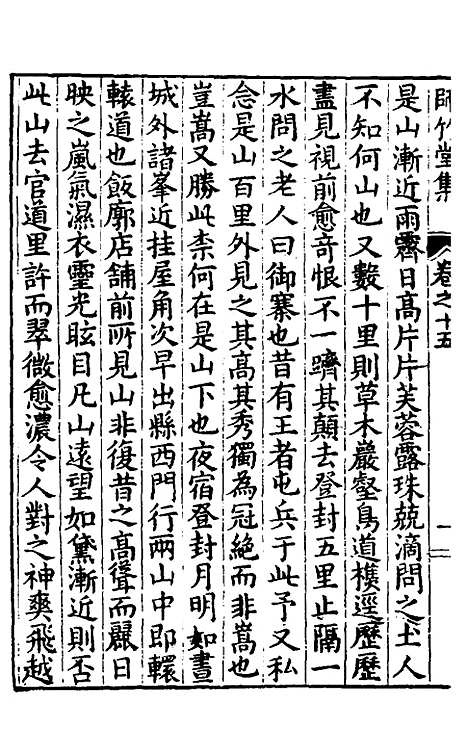 師竹堂集
卷之十五
一二
是山漸近雨霽日高片片芙蓉露珠兢滴問之土人
不知何山也又數十里則草木巖壑鳥道樵逕歷歷
盡見視前愈竒恨不一躋其顛去登封五里止隔一
水問之老人曰御寨也昔有王者屯兵于此予又私
念是山百里外見之其高其秀獨為冠絕而非嵩也
豈嵩又勝此柰何在是山下也夜宿登封月明如晝
城外諸峯近挂屋角次早出縣西門行兩山中即轘
轅道也飯廓店舖前所見山非復昔之高聳而麗日
映之嵐氣濕衣靈光眩目凡山遠望如黛漸近則否
此山去官道里許而翠微愈濃令人對之神爽飛越